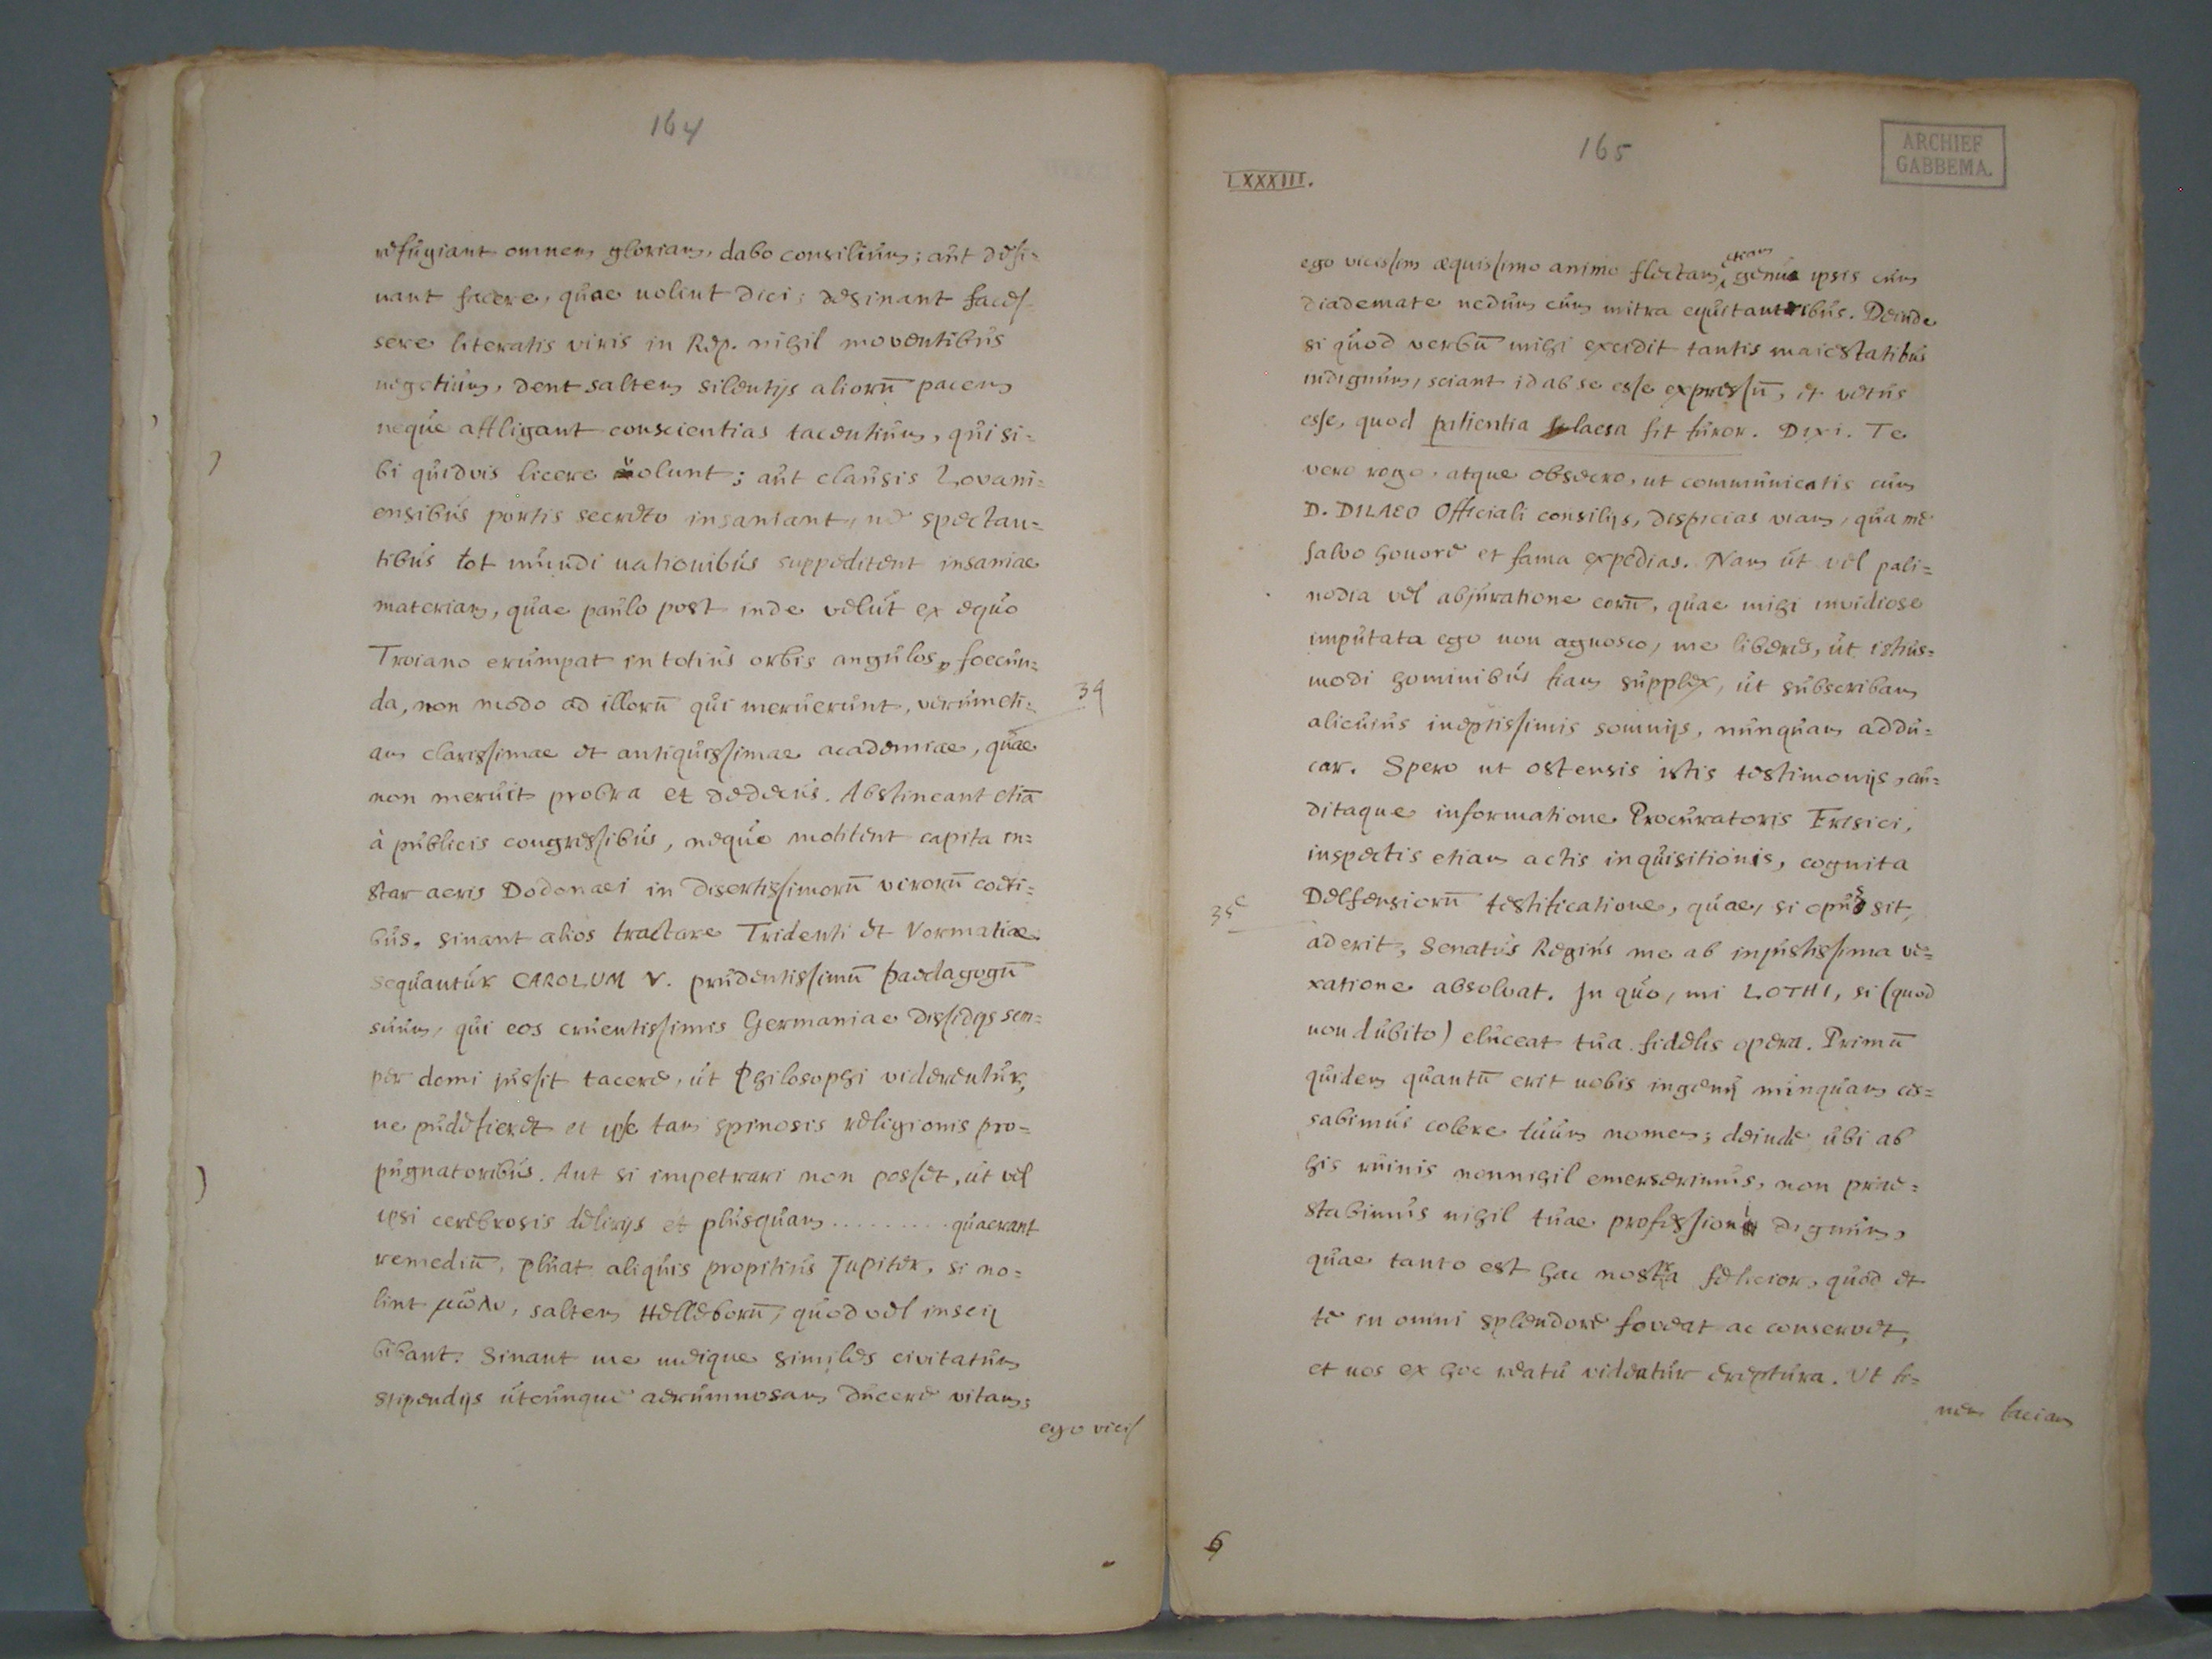 164
refugiant omnem gloriam, dabo consilium; aut desi-
nant facere, quae nolint dici; desinant faces-
sere literatis viris in Rep. nihil moventibus
negotium, dent saltem silentijs aliorū pacem
neque affligant conscientias tacentium, qui si-
bi quidvis licere volunt; aut clausis Lovani-
ensibus portis secreto insaniant, ne spectan-
tibus tot mundi nationibus suppeditent insaniae
materiam, quae paulo post inde velut ex equo
Troiano erumpat in totius orbis angulos, foecun-
da, non modo ad illorū qui meruerunt, verumeti-
34
am clarissimae et antiquissimae academiae, quae
non meruit probra et dedecus. Abstineant etiā
à publicis congressibus, neque motitent capita in-
star aeris Dodonaei in disertissimorū virorū coeti-
bus. sinant alios tractare Tridenti et Vormatiae
sequantur CAROLUM V. prudentissimū paedagogū
suum, qui eos cruentissimis Germaniae dissidijs sem-
per domi jussit tacere, ut Philosophi viderentur,
ne pudefieret et ipse tam spinosis religionis pro-
pugnatoribus. Aut si impetrari non posset, ut vel
ipsi cerebrosis delirijs et plusquam ......... quaerant
remediū, pluat aliquis propitius Jupiter, si no-
lint μῶλυ, saltem Helleborū, quod vel inscij
bibant. Sinant me undique similes civitatum
stipendijs utcunque aerumnosam ducere vitam;
ego vicis
165
ARCHIEF
GABBEMA.
LXXXIII.
etiam
ego vicissim aequissimo animo flectam genua ipsis cum
diademate nedum cum mitra equitantibus. Deinde
si quod verbū mihi excidit tantis maiestatibus
indignum, sciant id ab se esse expressū, et vetus
esse, quod patientia laesa fit furor. Dixi. Te
vero rogo atque obsecro, ut communicatis cum
D. DILAEO Officiali consilijs, despicias viam, qua me
salvo honore et fama expedias. Nam ut vel pali-
nodia vel abjuratione eorū, quae mihi invidiose
imputata ego non agnosco, me liberes, ut istius-
modi hominibus fiam supplex, ut subscribam
alicuius ineptissimis somnijs, nunquam addu-
car. Spero ut ostensis istis testimonijs, au-
ditaque informatione Procuratoris Frisici,
inspectis etiam actis inquisitionis, cognita
Delfensiorū testificatione, quae, si opus sit,
35
aderit, Senatus Regius me ab injustissima ve-
xatione absolvat. In quo, mi LOTHI, si (quod
non dubito) eluceat tua fidelis opera. Primū
quidem quantū erit nobis ingenij nunquam ces-
sabimus colere tuum nomen; deinde ubi ab
his ruinis nonnihil emerserimus, non prae-
stabimus nihil tuae professioni dignum,
quae tanto est hac nostra felicior, quod et
te in omni splendore foveat ac conservet,
et nos ex hoc reatu videatur ereptura. Ut fi-
nem faciam
6